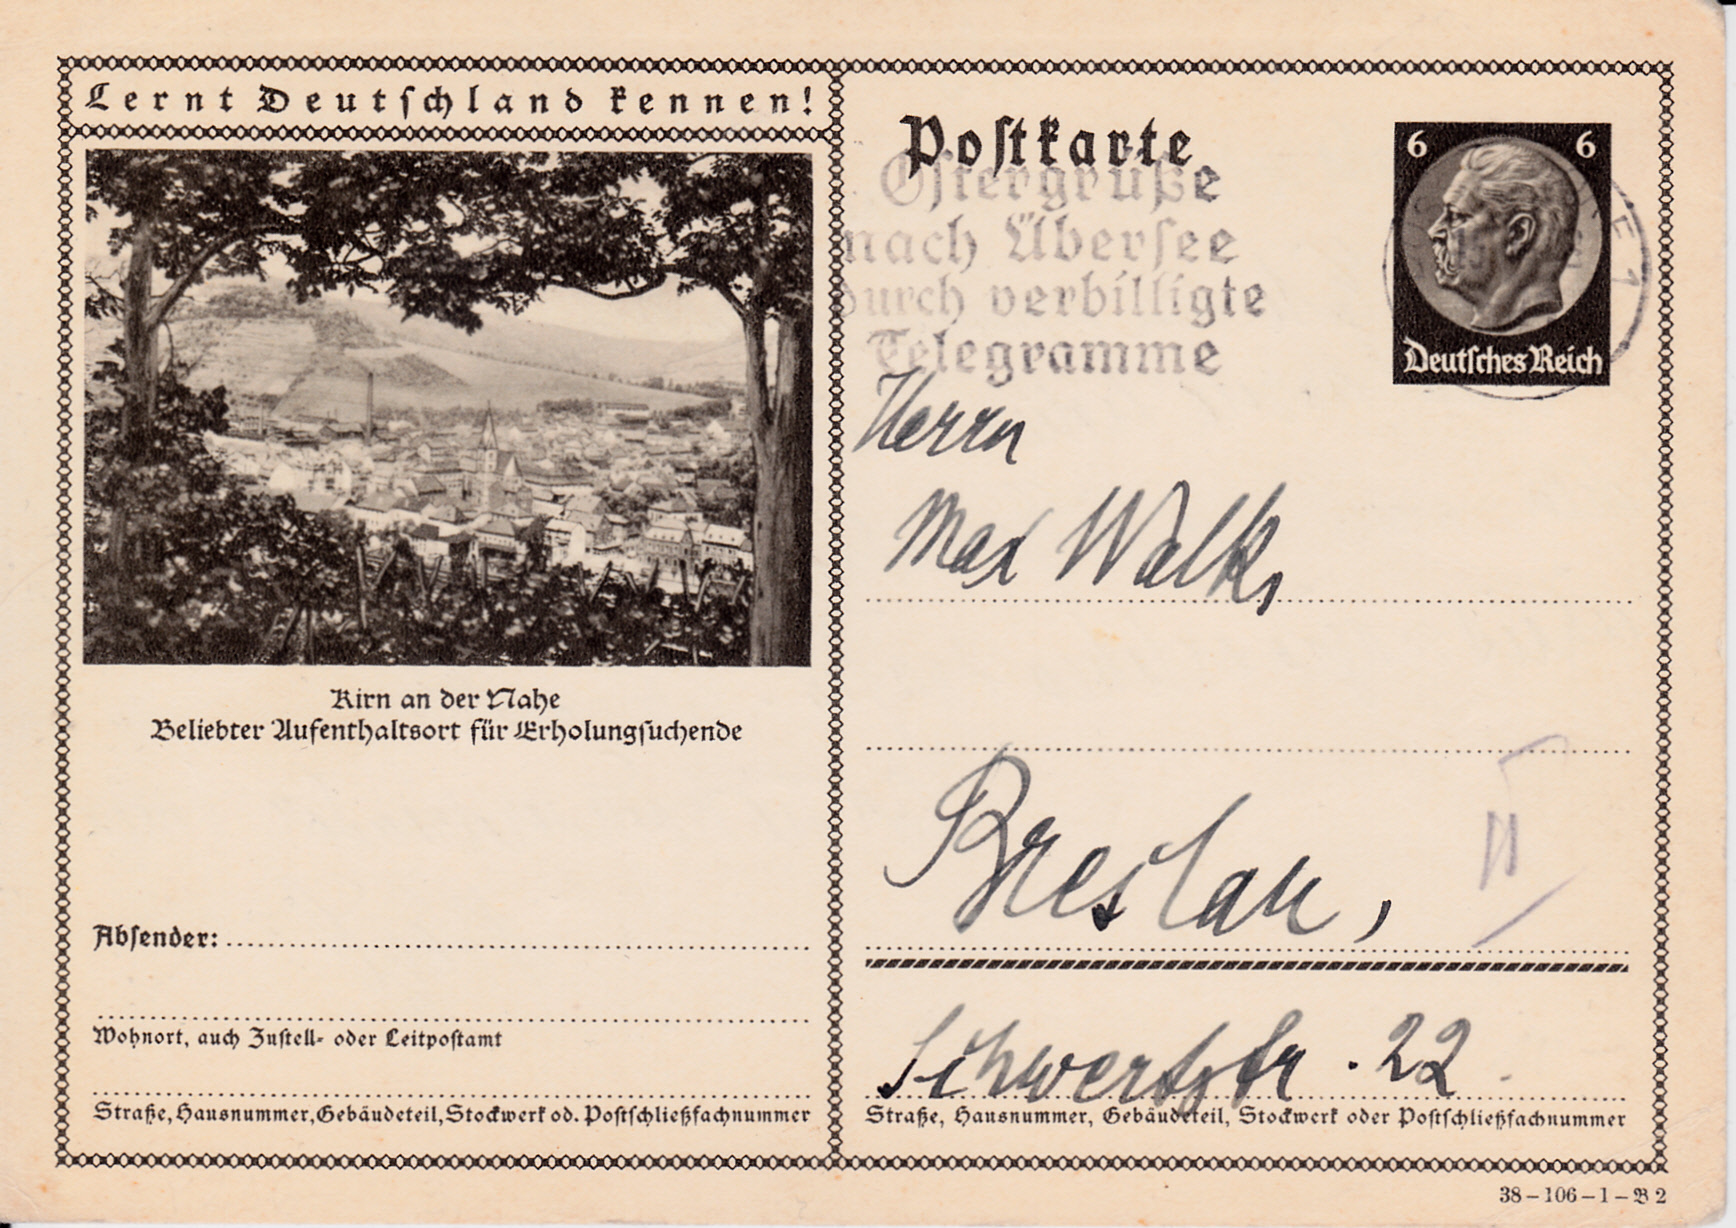 Lernt Deutschland kennen!
Kirn an der Nahe
Beliebter Aufenthaltsort für Erholungsuchende
Absender:
Wohnort, auch Zustell- oder Leitpostamt
Straße, Hausnummer, Gebäudeteil, Stockwerk od. Postschließfachnummer
Postkarte
Ostergrüße
nach Übersee
durch verbilligte
Telegramme
6 6
Deutsches Reich
Herrn
Max Walk,
Breslau,
II
Schwertstr. 22
Straße, Hausnummer, Gebäudeteil, Stockwerk oder Postschließfachnummer
38-106-1-B 2